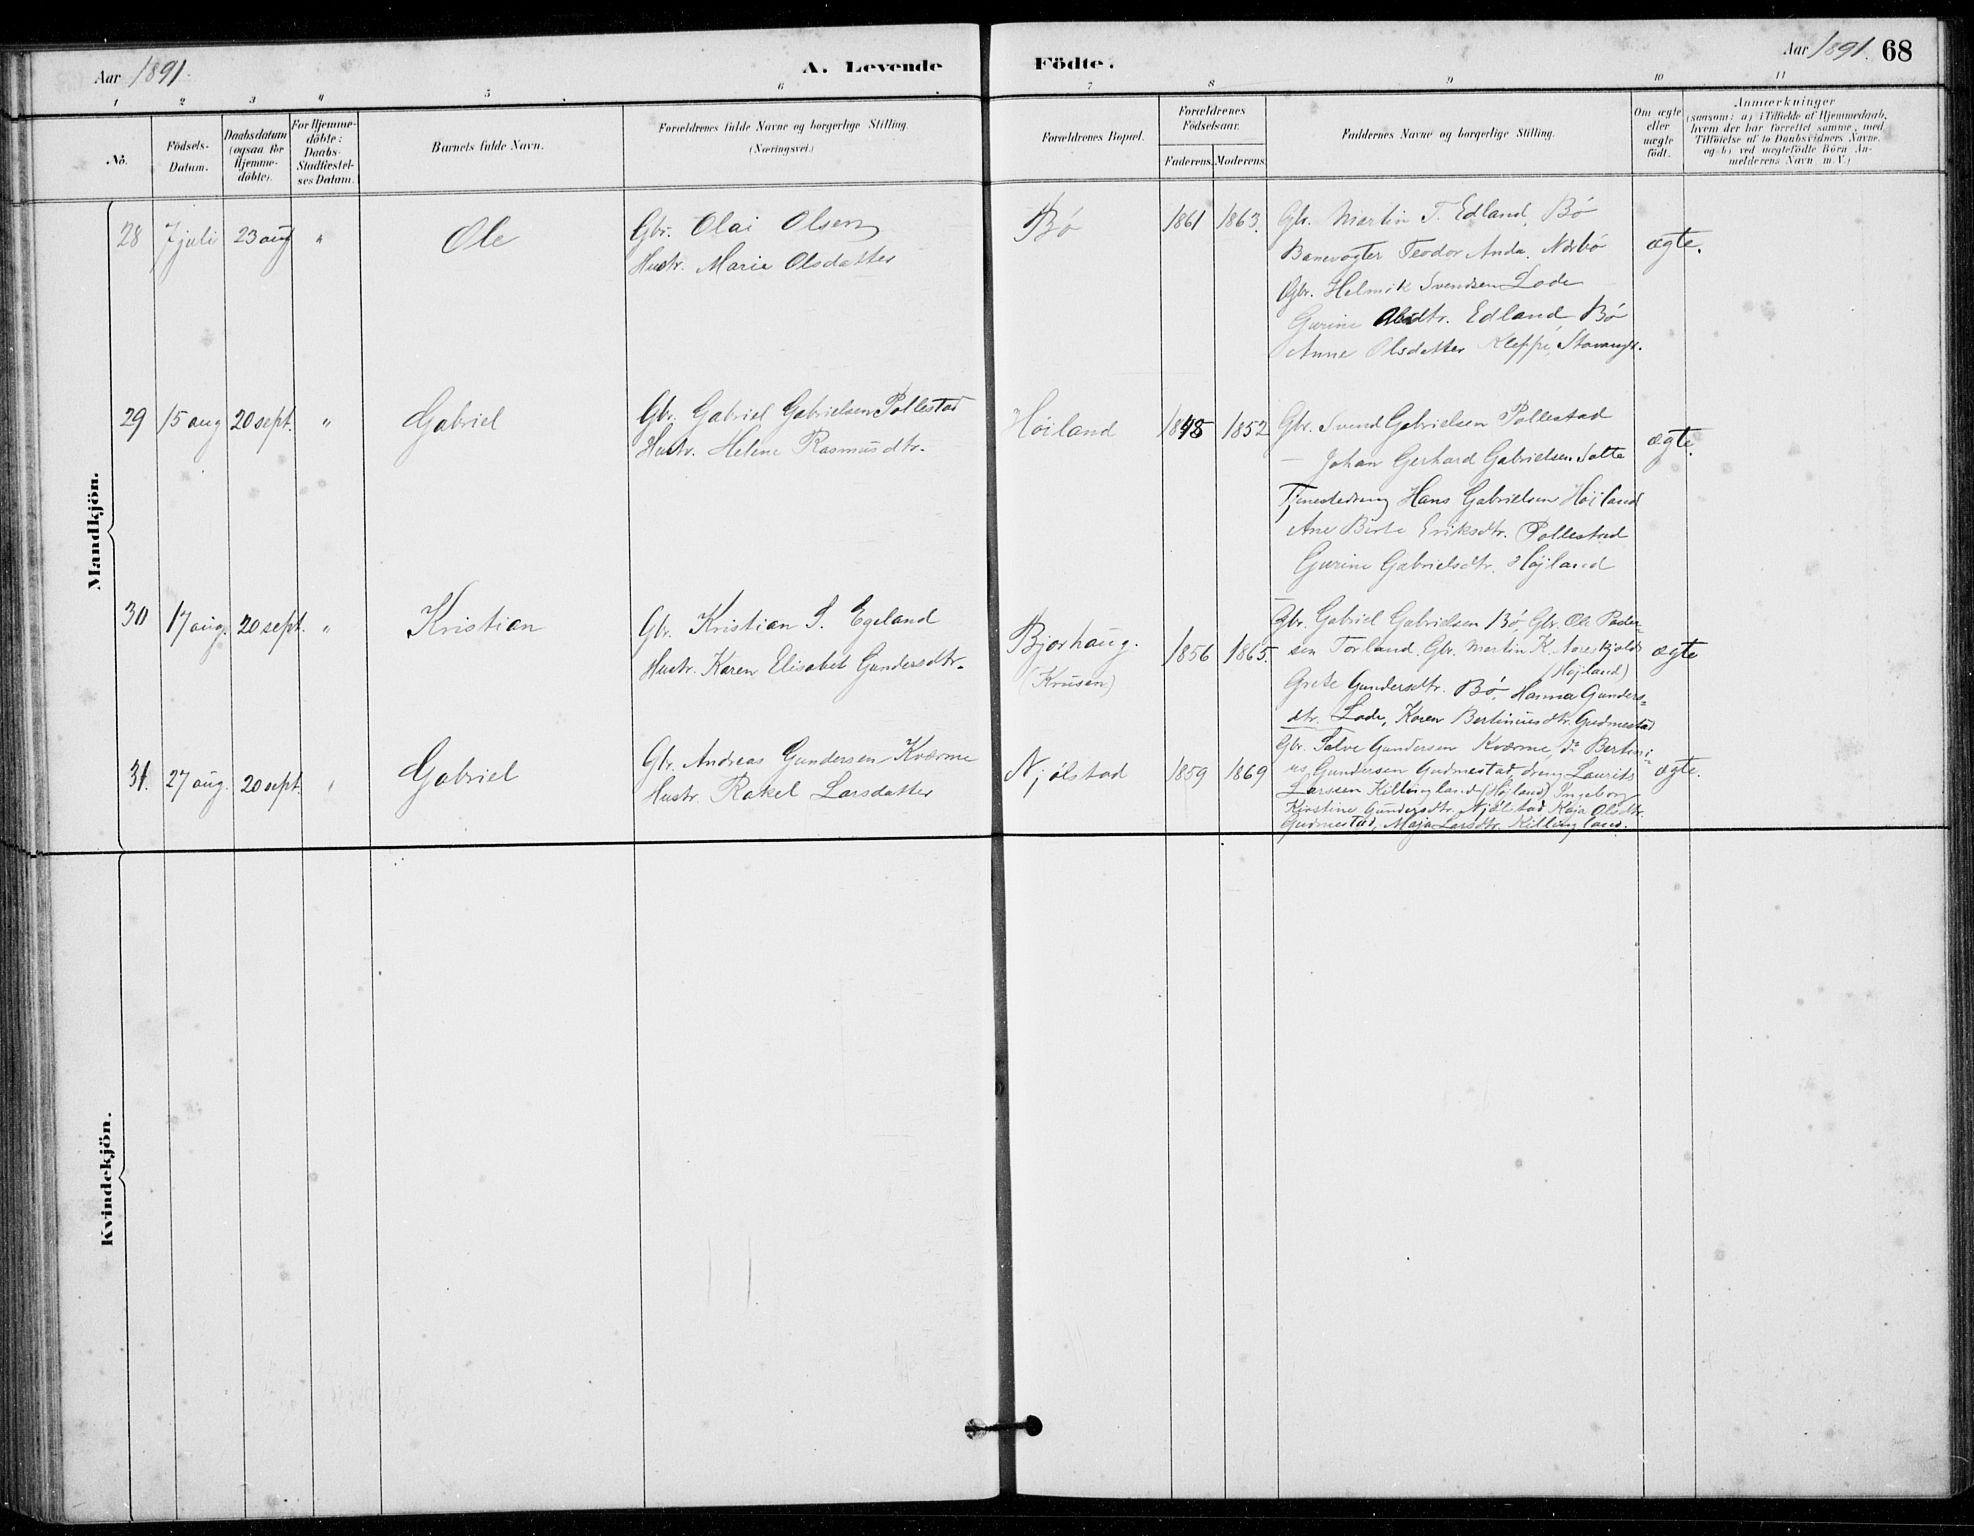 Aar 1891. A. Levende Födte. Aar 1891. 68
1 2 3 4 5 6 7 8 9 10 11
No.
Födsels-Datum.
Daabsdatum (ogsaa for Hjemme-döbte).
For Hjemme-döbte: Daabs-Stadfæstel-ses Datum.
Barnets fulde Navn.
Forældrenes fulde Navne og borgerlige Stilling. (Næringsvei.)
Forældrenes Bopæl.
Forældrenes Födselsaar.
Faderens. Moderens.
Faddernes Navne og borgerlige Stilling.
Om ægte eller uægte födt.
Anmærkninger (saasom: a) i Tilfælde af Hjemmedaab, hvem der har forrettet samme, med Tilföielse af to Daabsvidners Navne, og b) ved uægtefödte Börn An-melderens Navn m. V.)
Mandkjön.
28 7 juli 23 aug " Ole
Gbr. Olai Olsen
Hustr. Marie Olsdatter
Bø 1861 1863.
Gbr. Martin T. Edland, Bø
Banevogter Teodor Anda. Nærbø
Gbr. Helmik Svendsen Lode
Gurine Olsdtr. Edland Bø
Anne Olsdatter Kleppe, Stavanger.
ægte.
29 15 aug 20 sept. " Gabriel
Gbr. Gabriel Gabrielsen Pollestad
Hustr. Helene Rasmusdtr.
Høiland 1848 1852
Gbr. Svend Gabrielsen Pollestad
— Johan Gerhard Gabrielsen Salte
Tjenestedreng Hans Gabrielsen Høiland
Ane Berte Eriksdtr. Pollestad
Gurine Gabrielsdtr. Højland
ægte.
30 17 aug. 20 sept. " Kristian
Gbr. Kristian S. Egeland
Hustr. Karen Elisabet Gundersdtr.
Bjorhaug. (Krusen) 1856 1865.
Gbr. Gabriel Gabrielsen Bø Gbr. Ole Peder-
sen Torland. Gbr. Martin K. Areskjold
(Højland)
Grete Gundersdtr. Bø, Hanna Gunders-
dtr. Lode, Karen Bertinusdtr. Gudmestad
ægte
31. 27 aug. 20 sept. " Gabriel
Gbr. Andreas Gundersen Kværme
Hustr. Rakel Larsdatter
Njølstad 1859 1869
Gbr. Salve Gundersen Kværme, do Bertini-
us Gundersen Gudmestad, dreng Laurits
Larssen Killingland (Højland) Ingeborg
Kirstine Gundersdtr. Njølstad Kaja Olsdtr.
Gudmestad, Maja Larsdtr. Killingland.
ægte.
Kvindekjön.